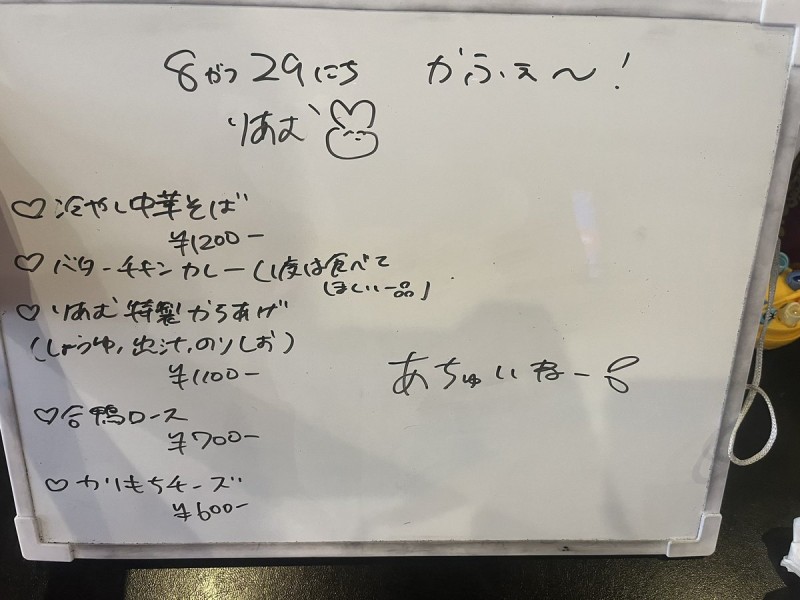 8がつ29にち かふぇ〜!
りあむ
♡冷やし中華そば
¥1200ー
♡バターチキンカレー(1度は食べて
ほしい一品)
♡りあむ特製からあげ
(しょうゆ,出汁,のりしお)
¥1100ー
あちゅいねー
♡合鴨ロース
¥700ー
♡かりもちチーズ
¥600ー